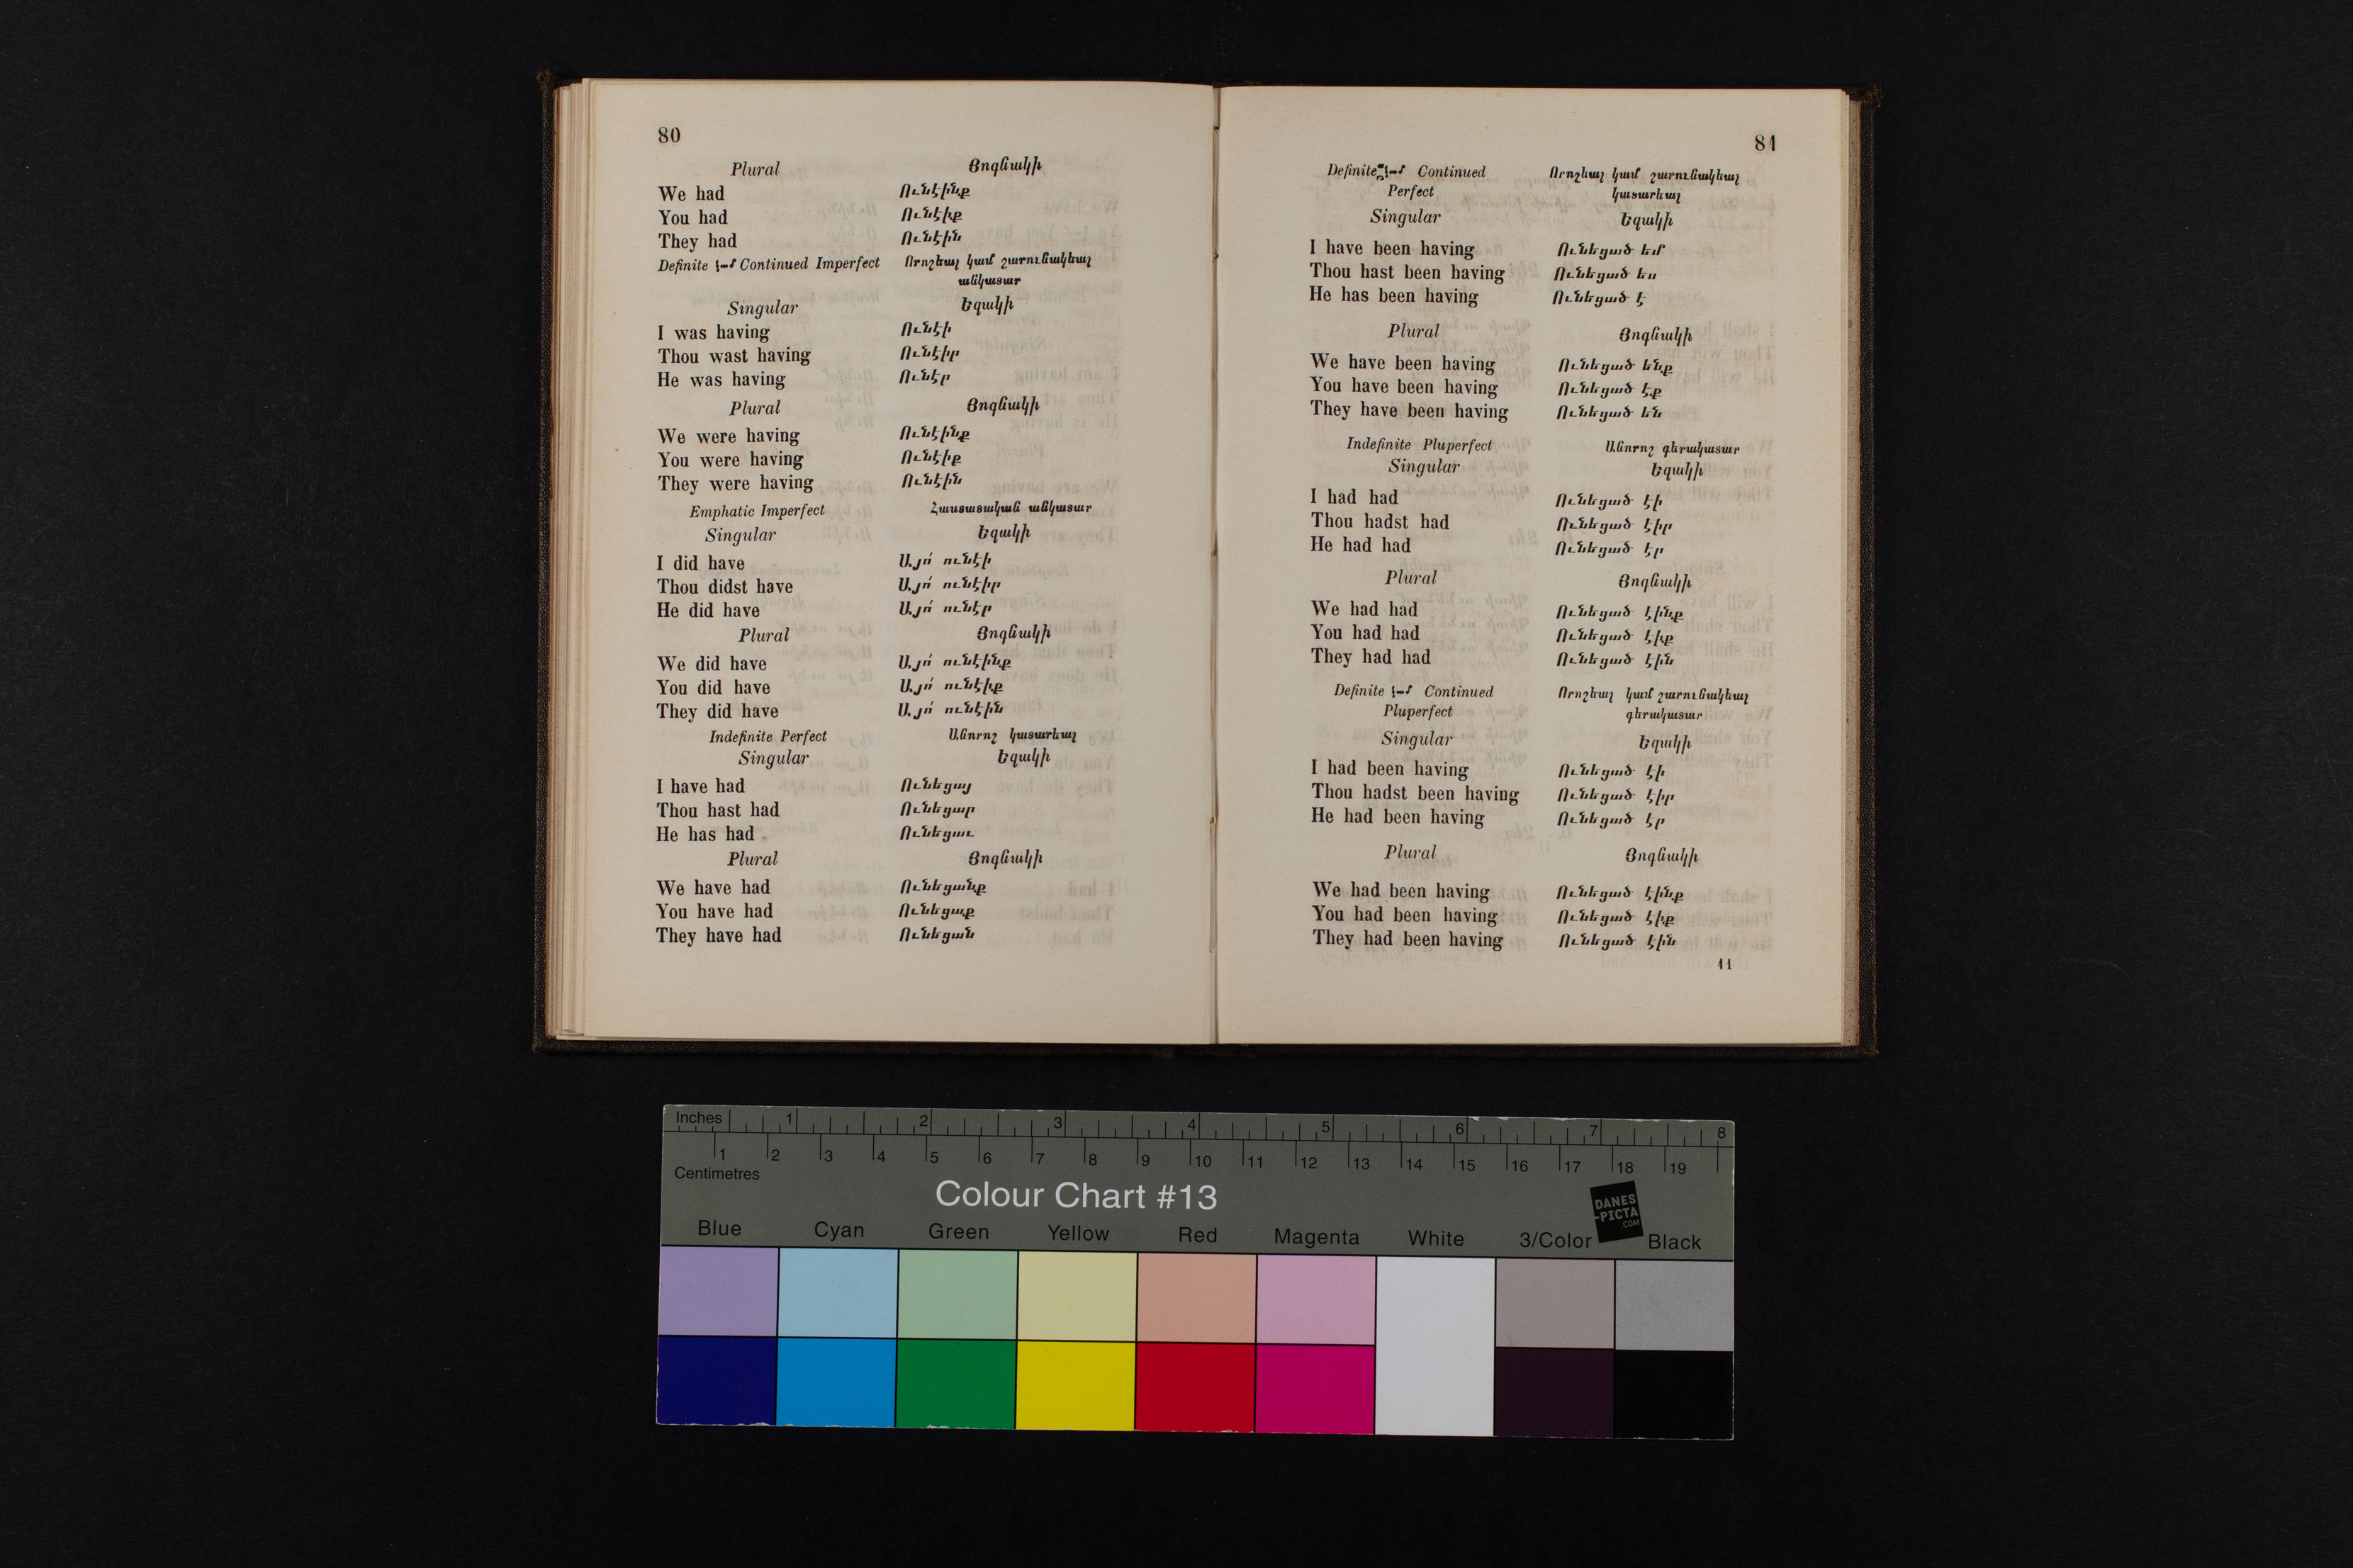 80
Plural Յոգնակի
We had Ունէինք
You had Ունէիք
They had Ունէին
Definite կամ Continued Imperfect Որոշեալ կամ շարունակեալ
անկատար
Singular Եզակի
I was having Ունէի
Thou wast having Ունէիր
He was having Ունէր
Plural Յոգնակի
We were having Ունէինք
You were having Ունէիք
They were having Ունէին
Emphatic Imperfect Հաստատական անկատար
Singular Եզակի
I did have Այո՛ ունէի
Thou didst have Այո՛ ունէիր
He did have Այո՛ ունէր
Plural Յոգնակի
We did have Այո՛ ունէինք
You did have Այո՛ ունէիք
They did have Այո՛ ունէին
Indefinite Perfect Անորոշ կատարեալ
Singular Եզակի
I have had Ունեցայ
Thou hast had Ունեցար
He has had Ունեցաւ
Plural Յոգնակի
We have had Ունեցանք
You have had Ունեցաք
They have had Ունեցան
81
Definite կամ Continued Որոշեալ կամ շարունակեալ
Perfect կատարեալ
Singular Եզակի
I have been having Ունեցած եմ
Thou hast been having Ունեցած ես
He has been having Ունեցած է
Plural Յոգնակի
We have been having Ունեցած ենք
You have been having Ունեցած էք
They have been having Ունեցած են
Indefinite Pluperfect Անորոշ գերակատար
Singular Եզակի
I had had Ունեցած էի
Thou hadst had Ունեցած էիր
He had had Ունեցած էր
Plural Յոգնակի
We had had Ունեցած էինք
You had had Ունեցած էիք
They had had Ունեցած էին
Definite կամ Continued Որոշեալ կամ շարունակեալ
Pluperfect գերակատար
Singular Եզակի
I had been having Ունեցած էի
Thou hadst been having Ունեցած էիր
He had been having Ունեցած էր
Plural Յոգնակի
We had been having Ունեցած էինք
You had been having Ունեցած էիք
They had been having Ունեցած էին
11
Inches 1 2 3 4 5 6 7 8
1 2 3 4 5 6 7 8 9 10 11 12 13 14 15 16 17 18 19
Centimetres
Colour Chart #13
DANES
-PICTA
.COM
Blue Cyan Green Yellow Red Magenta White 3/Color Black